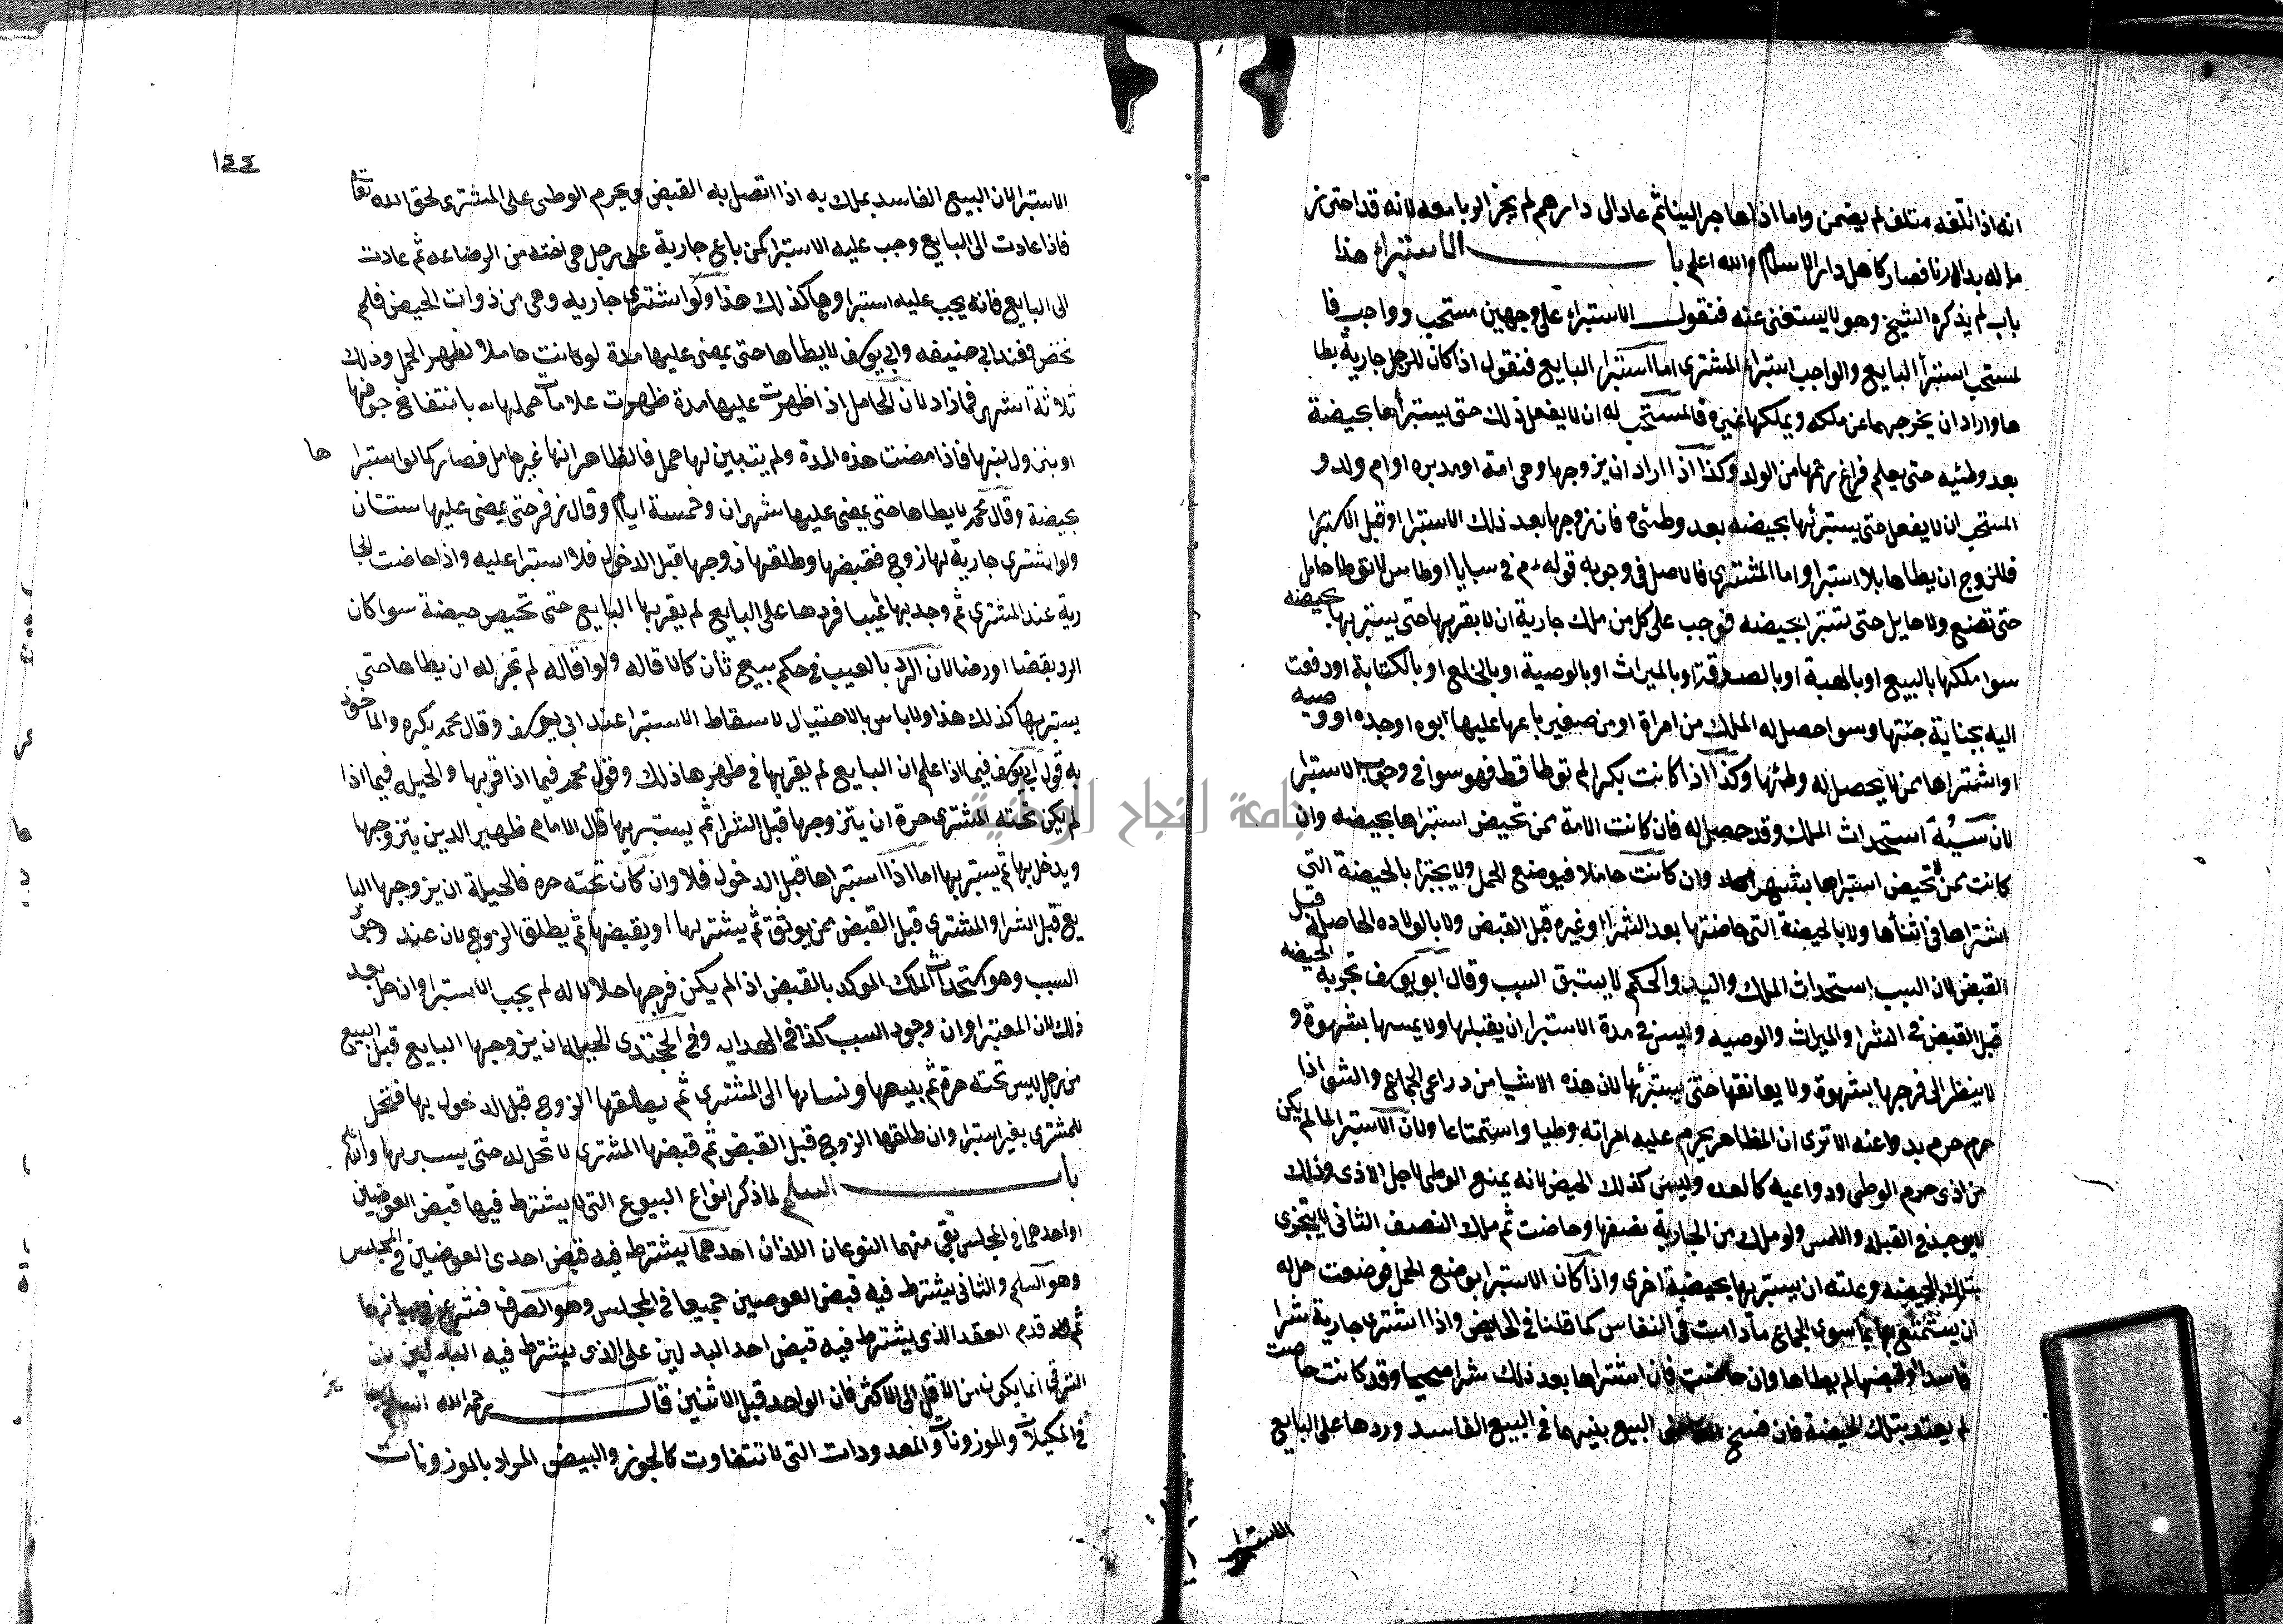 انه اذا اتلفه متلف لم يضمن واما اذا هاجر الينا ثم عاد الى دارهم لم يجز الربا معه لانه قد احترز
ماله بدارنا فصار كاهل دار الاسلام والله اعلم باب الاستبراء هذا
باب لم يذكره الشيخ وهو لا يستغنى عنه فنقول الاستبراء على وجهين مستحب وواجب فا
لمستحب استبرأ البايع والواجب استبراء المشترى اما استبرا البايع فنقول اذا كان للرجل جارية يطا
ها واراد ان يخرجها عن ملكه ويملكها غيره فالمستحب له ان لا يفعل ذلك حتى يستبرأها بحيضة
بعد وطئيه حتى يعلم فراغ رحمها من الولد وكذا اذا اراد ان يزوجها وهى امة او مدبره او ام ولد و
المستحب ان لا يفعل حتى يستبرئها بحيضه بعد وطئه فان زوجها بعد ذلك الاستبرا او قبل الاستبرا
فللزوج ان يطاها بلا استبرا واما المشترى فالاصل فى وجوبه قوله عم فى سبايا اوطاس لا توطا حامل
حتى تضع ولا حايل حتى تستبرا بحيضه فوجب على كل من ملك جارية ان لا يقربها حتى يستبريها بحيضه
سوا ملكها بالبيع او بالهبة او بالصدقة او بالميراث او بالوصية او بالخلع او بالكتابة او دفعت
اليه بجناية جنتها وسوا حصل له الملك من امراة او من صغير باعها عليها ابوه او جده او وصيه
او اشتراها ممن لا يحصل له وطئها وكذا اذا كانت بكرا لم توطا قط فهو سوا فى وجوب الاستبرا
لان سببه استحداث الملك وقد حصل له فان كانت الامة ممن تحيض استبراها بحيضه وان
كانت ممن لا تحيض استبراها بشهر وان كانت حاملا فبوضع الحمل ولا يجتزا بالحيضة التى
اشتراها فى اثناها ولا بالحيضة التى حاضتها بعد الشرا او غيره قبل القبض ولا بالولاده الحاصلة قبل
القبض لان السبب استحداث الملك واليد والحكم لا يسبق السبب وقال ابو يوسف تجزيه الحيضه
قبل القبض فى الشرا والميراث والوصيه وليس فى مدة الاستبرا ان يقبلها ولا يمسها بشهوة و
لا ينظر الى فرجها بشهوة ولا يعانقها حتى يستبرئها لان هذه الاشيا من دواعى الجماع والشى اذا
حرم حرم بدواعيه الا ترى ان المظاهر يحرم عليه امراته وطيا واستمتاعا ولان الاستبرا لما لم يكن
من اذى حرم الوطى ودواعيه كالعده وليس كذلك الحيض لانه يمنع الوطى لاجل الاذى وذلك
لا يوجد فى القبله واللمس ولو ملك من الجارية نصفها وحاضت ثم ملك النصف الثانى لا يتجزى
بتلك الحيضه وعلته ان يستبريها بحيضة اخرى واذا كان الاستبرا بوضع الحمل فوضعت حل له
ان يستمتع بها بما سوى الجماع ما دامت فى النفاس كما قلنا فى الحايض واذا اشترى جارية شرا
فاسدا وقبضها لم يطاها وان حاضت فان اشتراها بعد ذلك شرا صحيحا وقد كانت حاضت
لم يعتد بتلك الحيضة فان فسخ البيع بينهما فى البيع الفاسد وردها على البايع
الاستبرا
١٤٤
الاستبرا لان البيع الفاسد يملك به اذا اتصل به القبض ويحرم الوطى على المشترى لحق الله تعا
فاذا عادت الى البايع وجب عليه الاستبرا كمن باع جارية على رجل هى اخته من الرضاعه ثم عادت
الى البايع فانه يجب عليه استبراوها كذلك هذا ولو اشترى جاريه وهى من ذوات الحيض فلم
تحض فعند ابى حنيفه وابى يوسف لا يطاها حتى يمضى عليها مدة لو كانت حاملا لظهر الحمل وذلك
ثلاثة اشهر فما زاد لان الحامل اذا ظهرت عليها مدة ظهرت علامات حملها بانتفاخ جوفها
او بنزول لبنها فاذا مضت هذه المدة ولم يتبين لها حمل فالظاهر انها غير حامل فصار كما لو استبرا ها
بحيضة وقال محمد لا يطاها حتى يمضى عليها شهران وخمسة ايام وقال زفر حتى يمضى عليها سنتان
ولو اشترى جارية لها زوج فقبضها وطلقها زوجها قبل الدخول فلا استبرا عليه واذا حاضت الجا
رية عند المشترى ثم وجد بها عيبا فردها على البايع لم يقربها البايع حتى تحيض حيضة سوا كان
الرد بقضا او رضا لان الرد بالعيب فى حكم بيع ثان كالاقاله ولو اقاله لم تجز له ان يطاها حتى
يستبريها كذلك هذا ولا باس بالاحتيال لاسقاط الاستبرا عند ابى يوسف وقال محمد يكره والماخوذ
به قول ابى يوسف فيما اذا علم ان البايع لم يقربها فى طهرها ذلك وقول محمد فيما اذا قربها والحيله فيما اذا
لم يكن تحته المشترى حرة ان يتزوجها قبل الشرا ثم يستبريها قال الامام ظهير الدين يتزوجها
ويدخل بها ثم يستبريها اما اذا استبراها قبل الدخول فلا وان كان تحته حره فالحيلة ان يزوجها البا
يع قبل الشرا والمشترى قبل القبض ممن يوثق ثم يشتريها او يقبضها ثم يطلق الزوج لان عند وجو
السبب وهو استحداث الملك الموكد بالقبض اذا لم يكن فرجها حلالا له لم يجب الاستبرا وان حل بعد
ذلك لان المعتبر اوان وجود السبب كذا فى الهدايه وفى الخجندى الحيلة ان يزوجها البايع قبل البيع
من رجل ليس تحته حرة ثم يبيعها ويسلمها الى المشترى ثم يطلقها الزوج قبل الدخول بها فتحل
للمشترى بغير استبرا وان طلقها الزوج قبل القبض ثم قبضها المشترى لا تحل له حتى يستبريها والله اعلم
باب السلم لما ذكر انواع البيوع التى لا يشترط فيها قبض العوضين
او احدهما فى المجلس بقى منهما النوعان اللذان احدهما يشترط فيه قبض احدى العوضين فى المجلس
وهو السلم والثانى يشترط فيه قبض العوضين جميعا فى المجلس وهو الصرف فشرع فى بيانهما
ثم قدم العقد الذى يشترط فيه قبض احد البدلين على الذى يشترط فيه البدلين لان
الترقى انما يكون من الاقل الى الاكثر فان الواحد قبل الاثنين قال رحمه الله السلم
فى المكيلات والموزونات والمعدودات التى لا تتفاوت كالجوز والبيض المراد بالموزونات
جامعة النجاح الوطنية